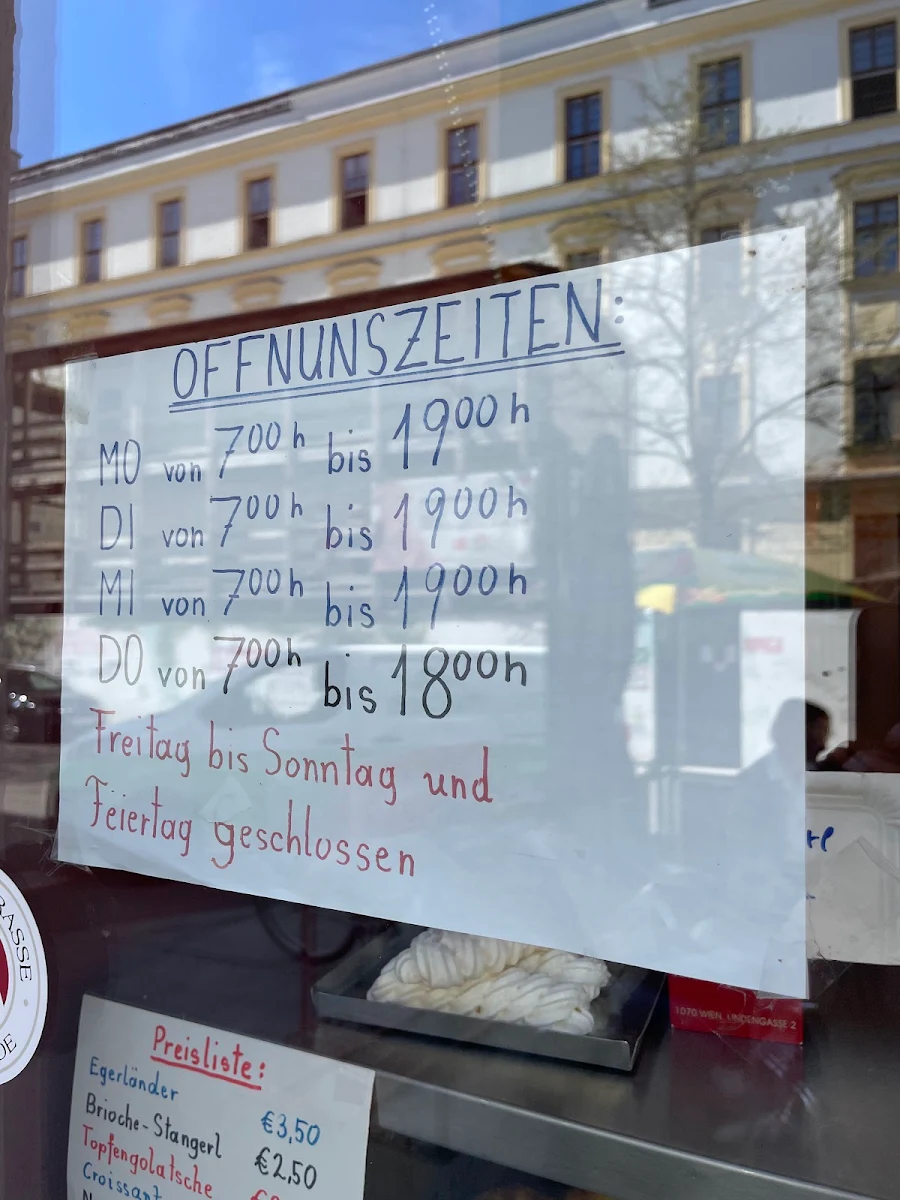 OFFNUNSZEITEN:
MO von 7⁰⁰h bis 19⁰⁰h
DI von 7⁰⁰h bis 19⁰⁰h
MI von 7⁰⁰h bis 19⁰⁰h
DO von 7⁰⁰h bis 18⁰⁰h
Freitag bis Sonntag und
Feiertag geschlossen
1070 WIEN, LINDENGASSE 2
Preisliste:
Egerländer €3,50
Brioche-Stangerl €2,50
Topfengolatsche
Croissant